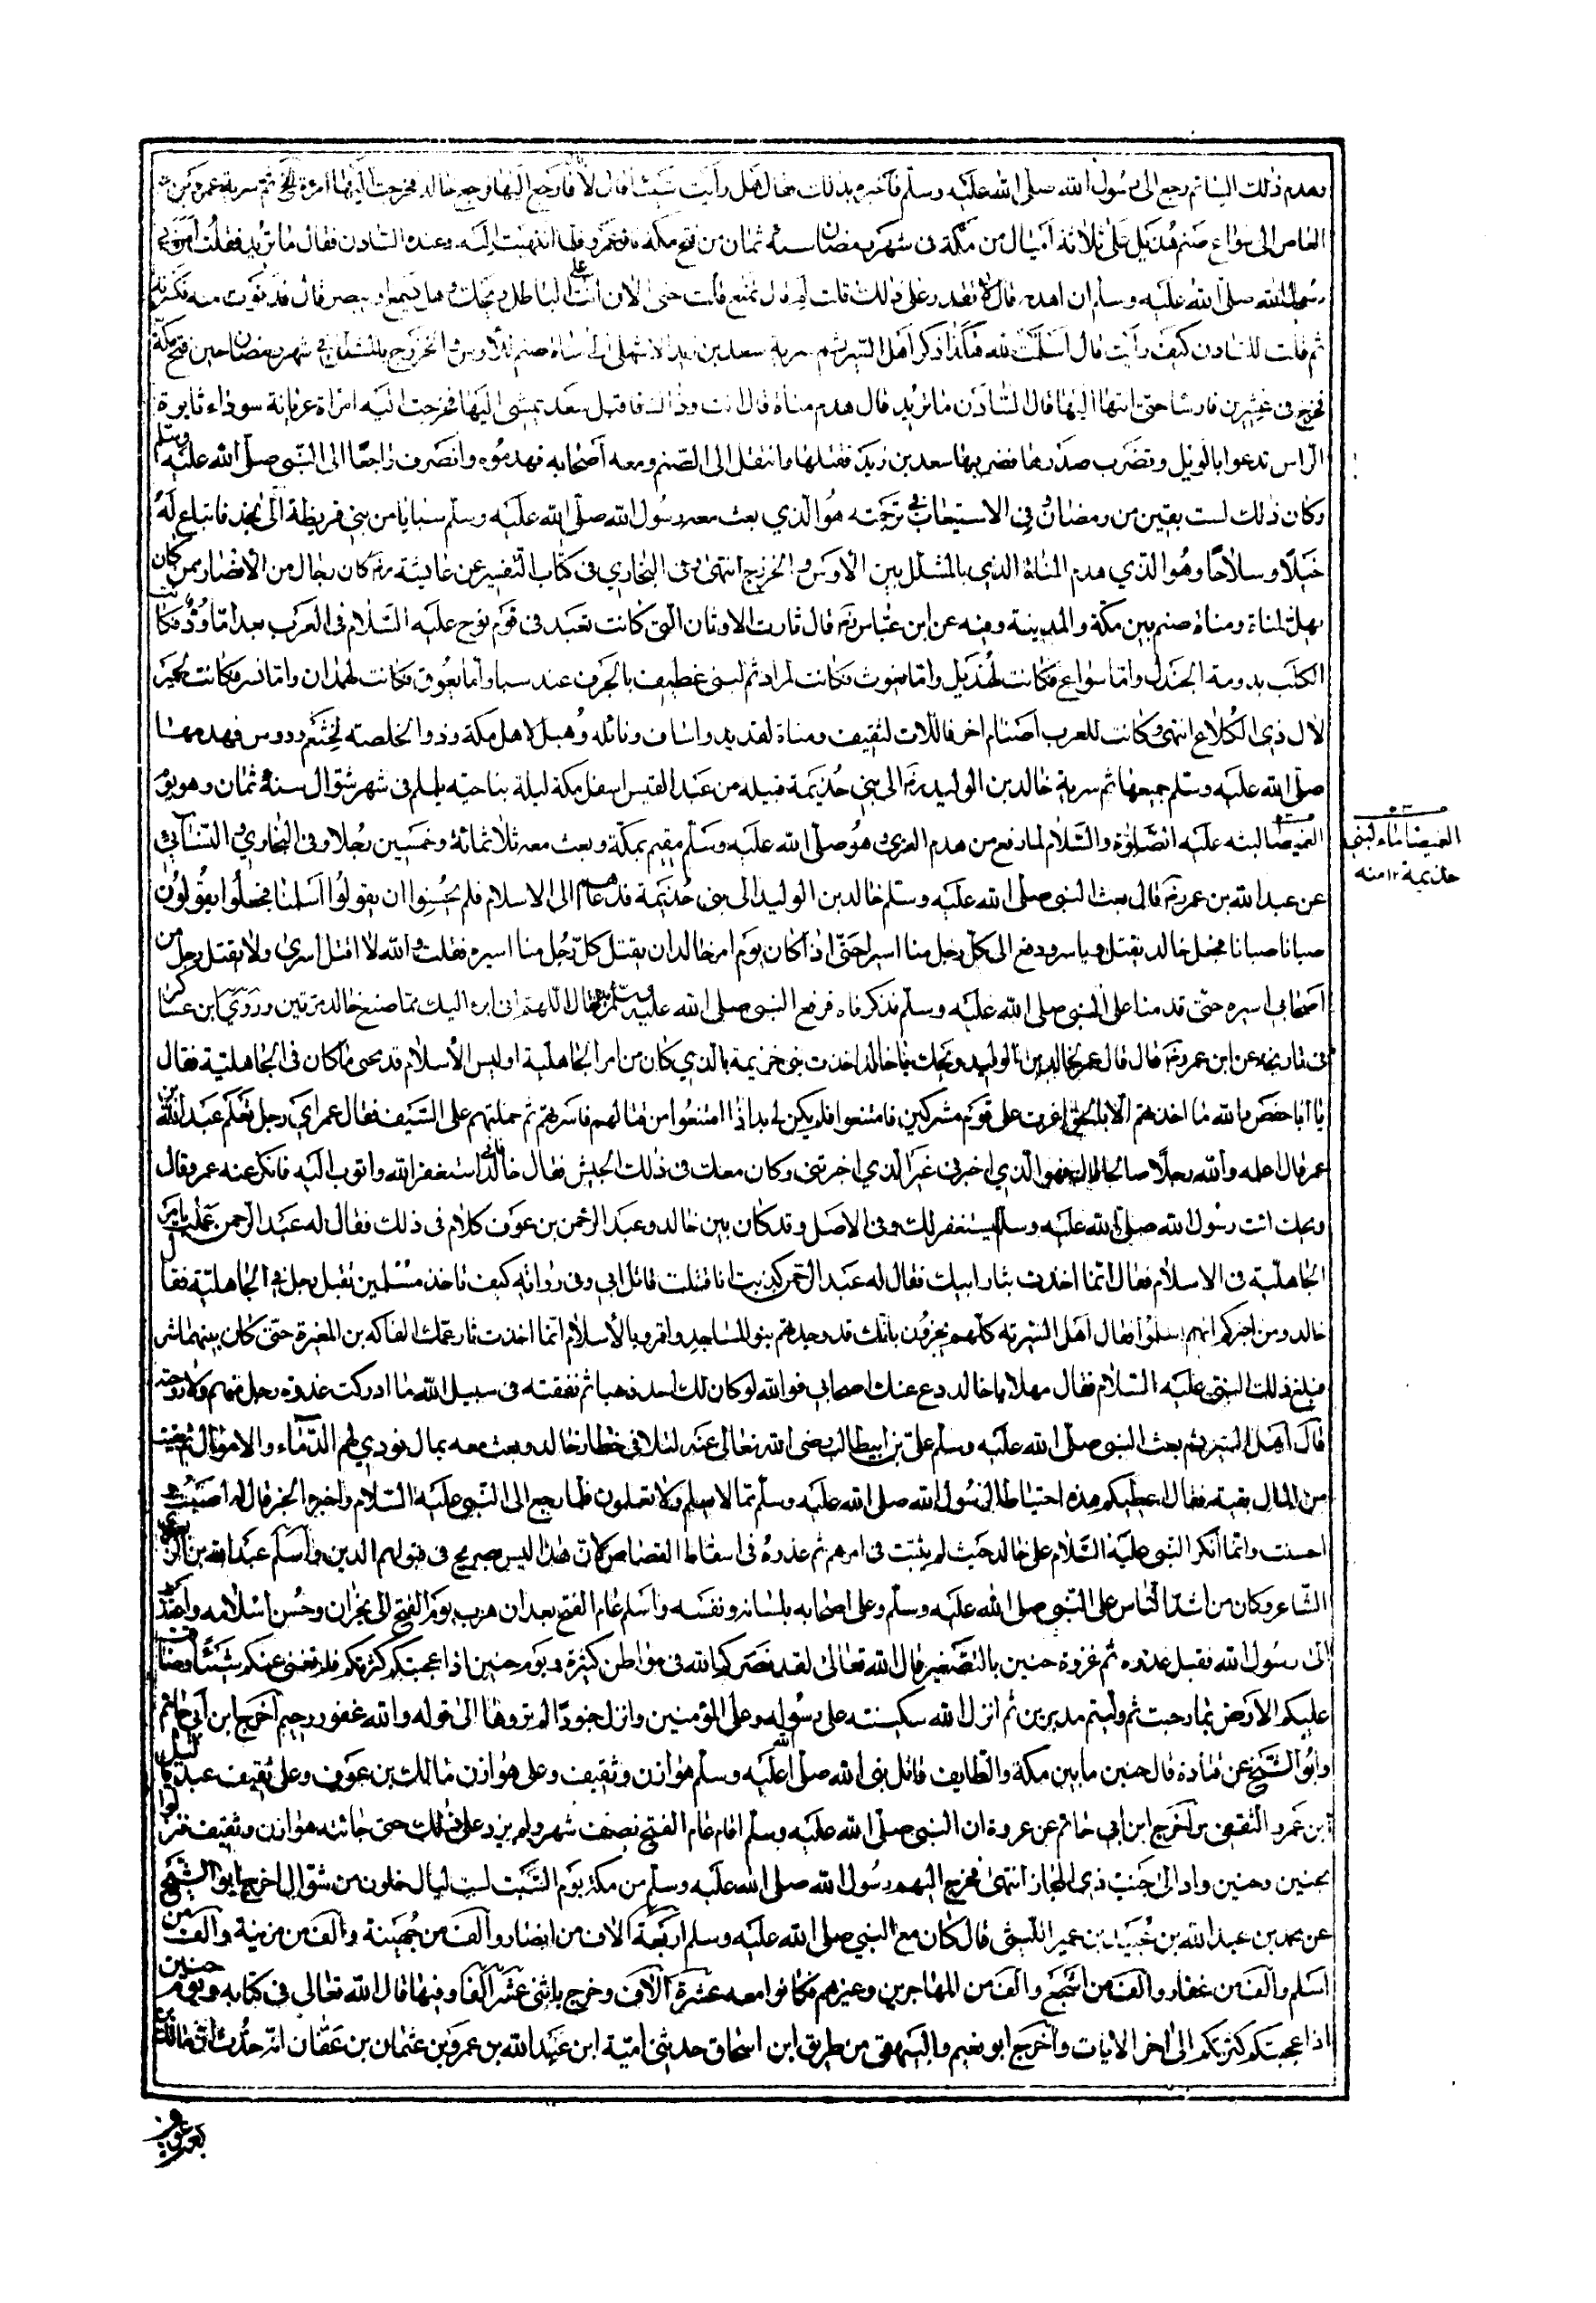 وهدم ذلك البنا ثم رجع الى رسول الله صلى الله عليه وسلم فاخبره بذلك فقال هل رأيت شيئا قال لا فارجع اليها فرجع خالد فخرجت اليها امرة الخ ثم سرية عمرو بن
العاص الى سواع صنم هذيل على ثلاثة أميال من مكة في شهر رمضان سنة ثمان من فتح مكة قال عمرو فلما انتهيت اليه وعنده السادن فقال ما تريد فقلت امرني
رسول الله صلى الله عليه وسلم ان اهدمه قال لا تقدر على ذلك قلت لم قال تمنع قلت حتى الان انت على الباطل ويحك وهل يسمع او يبصر قال فدنوت منه فكسرته
ثم قلت للسادن كيف رأيت قال اسلمت لله هكذا ذكر اهل السير ثم سرية سعد بن زيد الاشهلي الى مناة صنم للاوس والخزرج بالمشلل في شهر رمضان حين فتح مكة
فخرج في عشرين فارسا حتى انتهى اليها قال السادن ما تريد قال هدم مناة قال انت وذاك فاقبل سعد يمشي اليها فخرجت اليه امراة عريانة سوداء ثايرة
الراس تدعوا بالويل وتضرب صدرها فضربها سعد بن زيد فقتلها وانتقل الى الصنم ومعه أصحابه فهدموه وانصرف راجعا الى النبي صلى الله عليه وسلم
وكان ذلك لست بقين من رمضان وفي الاستيعاب في ترجمته هو الذي بعث معه رسول الله صلى الله عليه وسلم سبايا من بني قريظة الى نجد فابتاع له
خيلا وسلاحا وهو الذي هدم المناة الذي بالمشلل بين الاوس والخزرج انتهى وفي البخاري في كتاب التفسير عن عايشة رضـ كان رجال من الأنصار ممن كان
يهل لمناة ومناة صنم بين مكة والمدينة وفيه عن ابن عباس رضـ قال ثارت الاوثان التي كانت تعبد في قوم نوح عليه السلام في العرب بعد اما ود فكانت
الكلب بدومة الجندل واما سواع فكانت لهذيل واما يغوث فكانت لمراد ثم لبني غطيف بالجرف عند سبا واما يعوق فكانت لهمدان واما نسر فكانت لحمير
لال ذي الكلاع انتهى وكانت للعرب أصنام اخر فاللات لثقيف ومناة لقديد واساف ونائله وهبل لاهل مكة وذو الخلصته لخثعم ودوس فهدمها
صلى الله عليه وسلم جميعها ثم سرية خالد بن الوليد رضـ الى بني جذيمة قبيله من عبد القيس اسفل مكة ليلة بناحيته يلملم في شهر شوال سنة ثمان وهو يوم
الغميصا البثه عليه الصلوة والسلام لما رفع من هدم العزى وهو صلى الله عليه وسلم مقيم بمكة وبعث معه ثلاثمائة وخمسين رجلا وفي البخاري والنسائي
عن عبد الله بن عمر رضـ قال بعث النبي صلى الله عليه وسلم خالد بن الوليد الى بني جذيمة فدعاهم الى الاسلام فلم يحسنوا ان يقولوا اسلمنا فجعلوا يقولون
صبانا صبانا فجعل خالد يقتل وياسر ودفع الى كل رجل منا اسيرا حتى اذا كان يوم امر خالد ان يقتل كل رجل منا اسيره فقلت والله لا اقتل أسرى ولا يقتل رجل من
أصحابي اسيره حتى قدمنا على النبي صلى الله عليه وسلم فذكرناه فرفع النبي صلى الله عليه وسلم يده فقال اللهم اني ابرء اليك مما صنع خالد مرتين وروى ابن عساكر
في تاريخه عن ابن عمر رضـ قال قال عمر لخالد بن الوليد ويحك يا خالد اخذت بني خزيمة بالذي كان من امر الجاهلية اوليس الأسلام قد محى ما كان في الجاهلية فقال
يا ابا حفص والله ما اخذتهم الا بالحق اغرت على قوم مشركين فامتنعوا فلم يكن لي بد اذا امتنعوا من قتالهم فاسرتهم ثم حملتهم على السيف فقال عمر اي رجل تعلم عبد الله بن
عمر قال اعلمه والله رجلا صالحا قال فهو الذي اخبرني غير الذي اخبرتني وكان معك في ذلك الجيش فقال خالد فاني استغفر الله واتوب اليه فانكر عنه عمر وقال
ويحك ائت رسول الله صلى الله عليه وسلم يستغفر لك وفي الاصل وقد كان بين خالد وعبد الرحمن بن عوف كلام في ذلك فقال له عبد الرحمن عملت بامر
الجاهلية في الاسلام فقال انما اخذت بثار ابيك فقال له عبد الرحمن كذبت انا قتلت قاتل ابي وفي رواته كيف تاخذ مسلمين بقبل رجل في الجاهلية فقال
خالد ومن اخبركم انهم اسلموا فقال أهل السرية كلهم يخبرون بانك قد وجدتهم بنوا المساجد واقروا بالأسلام انما اخذت ثار عمك الفاكه بن المغيرة حتى كان بينهما شر
فبلغ ذلك النبي عليه السلام فقال مهلا يا خالد دع عنك اصحابي فوالله لو كان لك احد ذهبا ثم نفقته في سبيل الله ما ادركت غدوة رجل منهم ولا روحته
قال أهل السير ثم بعث النبي صلى الله عليه وسلم علي بن ابيطالب رضى الله تعالى عنه لتلافى خطاء خالد وبعث معه بمال فودي لهم الدماء والاموال ثم بقيت
من المال بقيته فقال اعطيكم هذه احتياطا لرسول الله صلى الله عليه وسلم مما لا يعلم ولا تعلمون فلما رجع الى النبي عليه السلام واخبره الخبر قال له أصبت و
احسنت وانما أنكر النبي عليه السلام على خالد حيث لم يثبت في امرهم ثم عذره في اسقاط القصاص كان هذا ليس صريح في قبولهم الدين وأسلم عبد الله بن الزبعرى
الشاعر وكان من اشد الناس على النبي صلى الله عليه وسلم وعلى اصحابه بلسانه ونفسه وأسلم عام الفتح بعد ان هرب يوم الفتح الى نجران وحسن اسلامه واعتذر
إلى رسول الله فقبل عذره ثم غزوة حنين بالتصغير قال الله تعالى لقد نصركم الله في مواطن كثيرة ويوم حنين اذ اعجبتكم كثرتكم فلم تغن عنكم شيئا وضاقت
عليكم الأرض بما رحبت ثم وليتم مدبرين ثم انزل الله سكينته على رسوله وعلى المؤمنين وانزل جنودا لم تروها الى قوله والله غفور رحيم أخرج ابن أبي حاتم
وابو الشيخ عن قتادة قال حنين ما بين مكة والطايف قاتل نبي الله صلى الله عليه وسلم هوازن وثقيف وعلى هوازن مالك بن عوف وعلى ثقيف عبد ياليل
بن عمرو الثقفي وأخرج ابن ابي حاتم عن عروة ان النبي صلى الله عليه وسلم اقام عام الفتح نصف شهر ولم يزد على ذلك حتى جائته هوازن وثقيف فنزلوا
بحنين وحنين واد الى جنب ذي المجاز انتهى فخرج اليهم رسول الله صلى الله عليه وسلم من مكة يوم السبت لست ليال خلون من شوال اخرج ابو الشيخ
عن محمد بن عبد الله بن عبيد بن عمير الليثي قال كان مع النبي صلى الله عليه وسلم اربعة آلاف من انصار وألف من جهينة وألف من مزنية وألف من
اسلم والف من غفار والف من اشجع والف من المهاجرين وغيرهم فكانوا معه عشرة آلاف وخرج باثني عشر ألفا وفيها قال الله تعالى في كتابه ويوم حنين
اذ اعجبتكم كثرتكم الى اخر الآيات وأخرج ابو نعيم والبيهقي من طريق ابن اسحاق حدثني امية ابن عبد الله بن عمرو بن عثمان بن عفان انه حدث ان مالك بن
الغميصا ماء لبني
جذيمة ١٢ منه
بعد عوف